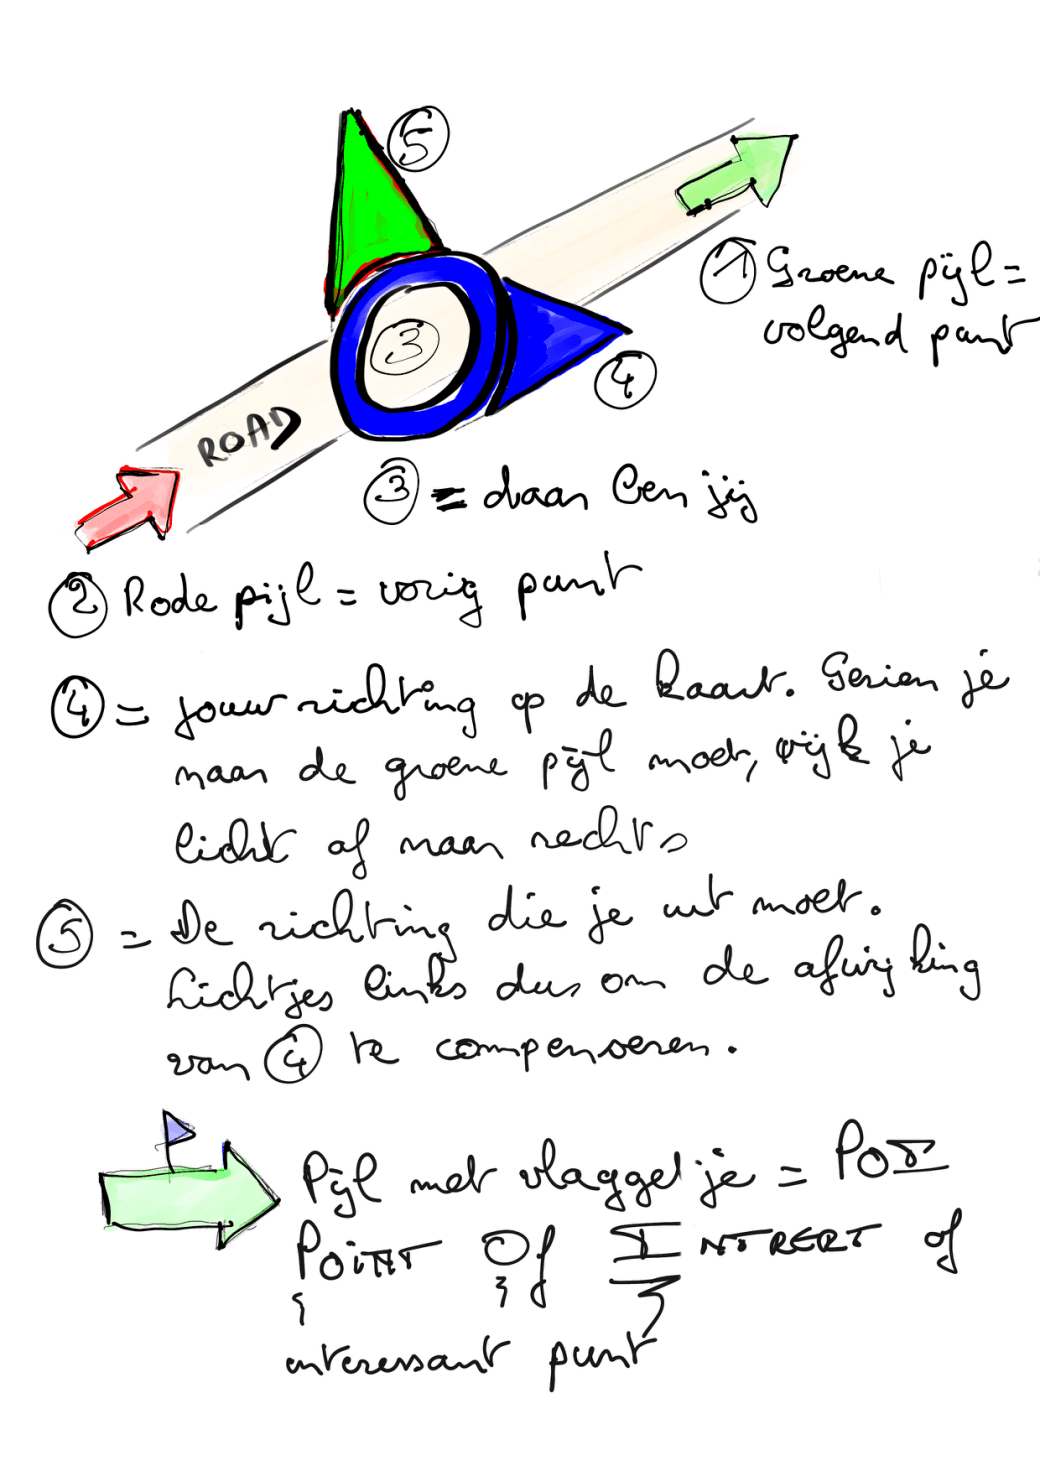 5
1 Groene pijl =
volgend punt
3
4
ROAD
3 = daar ben jij
2 Rode pijl = vorig punt
4 = jouw richting op de kaart. Gezien je
naar de groene pijl moet, wijk je
licht af naar rechts
5 = De richting die je uit moet.
Lichtjes links dus om de afwijking
van 4 te compenseren.
Pijl met vlaggetje = POI
POINT Of INTREST of
interessant punt